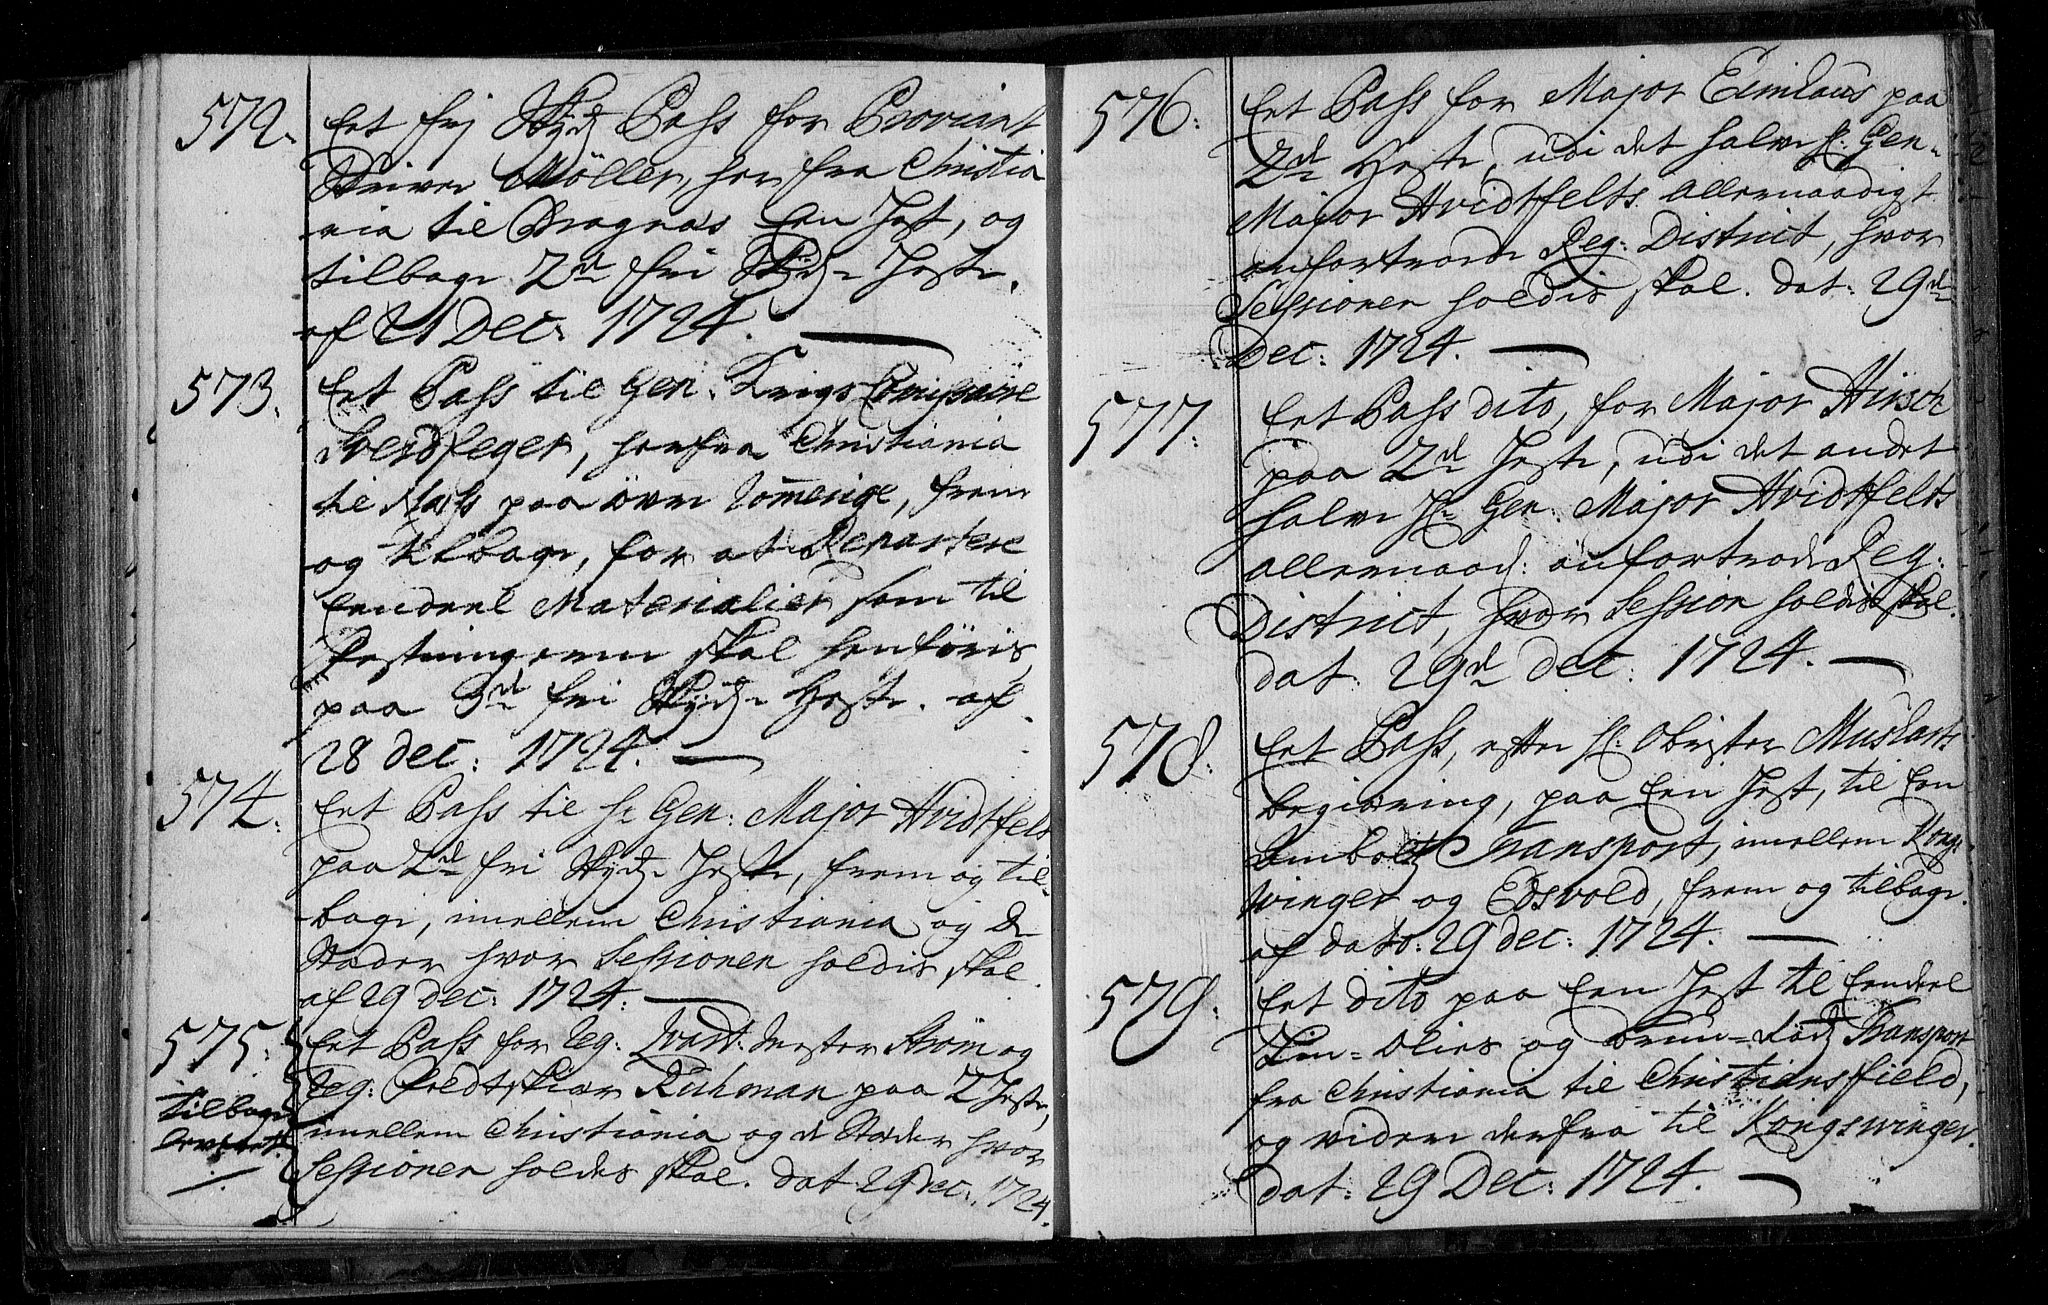 572.
Eet frj Skyds Pass for Proviant
Skriver Möller, her fra Christia
nia til Dragnæs Een Hest, og
tilbage 2de fri Skyds Heste.
af 21 Dec: 1724.
573.
Eet Pass til Gen: Krigs Comissaire
Sverdfeger, herfra Christiania
til Næs paa övre Rommerige, frem
og tilbage, for at Repartere
Eendeel Materialier som til
Festningerne skal henföris,
paa 3de fri Skyds Heste. af
28 dec: 1724.
574.
Eet Pass til Hr Gen: Major Hvidtfelt
paa 2de fri Skyds Heste, frem og til-
bage, imellem Christiania og de
Stæder hvor Sessionen holdis skal.
af 29 dec: 1724.
575.
tilbage
levert.
Eet Pass for Reg: Qvart: Mester Ström og
Reg: Feldtskiær Ruhman paa 2 Heste,
imellem Christiania og de Stæder hvor
Sessionen holdes skal. dat 29 dec: 1724.
576.
Eet Pass for Major Eimhaus paa
2de Heste, udi det halve Hr: Gen-
Major Hvidtfelts allernaadigst
anfortroede Reg: District, hvor
Sessionen holdis skal. dat: 29de
Dec: 1724.
577.
Eet Pass dito, for Major Hirsch
paa 2de Heste, udi det andet
halve Hr Gen: Major Hvidtfelts
allernaad: anfortroede Reg:
District, hvor Session holdis skal.
dat: 29de dec: 1724.
578.
Eet Pass, efter Hr: Obrister
begiæring, paa Een Hest, til Een
Ambolts Transport, imellem Kongs
winger og Edsvold, frem og tilbage.
af dato: 29 dec: 1724.
579.
Eet dito paa Een Hest til Eendeel
Lin-Olies og Brun-Röds Transport
fra Christiania til Christiansfield,
og videre derfra til Kongswinger.
dat: 29 Dec: 1724.